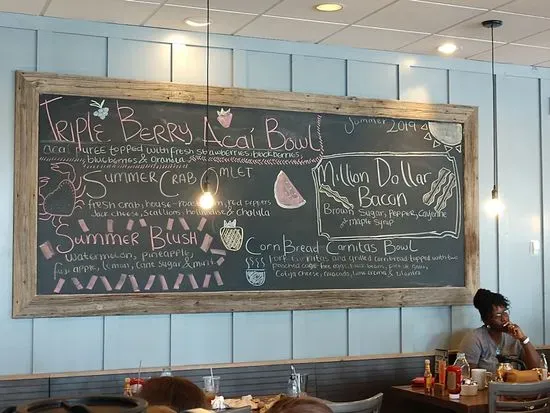 Triple Berry Acaí Bowl
acai puree topped with fresh strawberries, blackberries,
blueberries & Granola
Summer Crab Omlet
fresh crab, house-roasted red peppers
Jack cheese, Scallions, hollandaise & cholula
Summer Blush
Watermelon, pineapple,
fuji apple, lemon, cane sugar & mint
Summer 2019
Million Dollar
Bacon
Brown Sugar, Pepper, Cayenne
maple syrup
Corn Bread Carnitas Bowl
Pork Carnitas and grilled cornbread topped with two
poached cage-free eggs, black beans, pico de gallo,
Cotija cheese, avocado, lime crema & cilantro